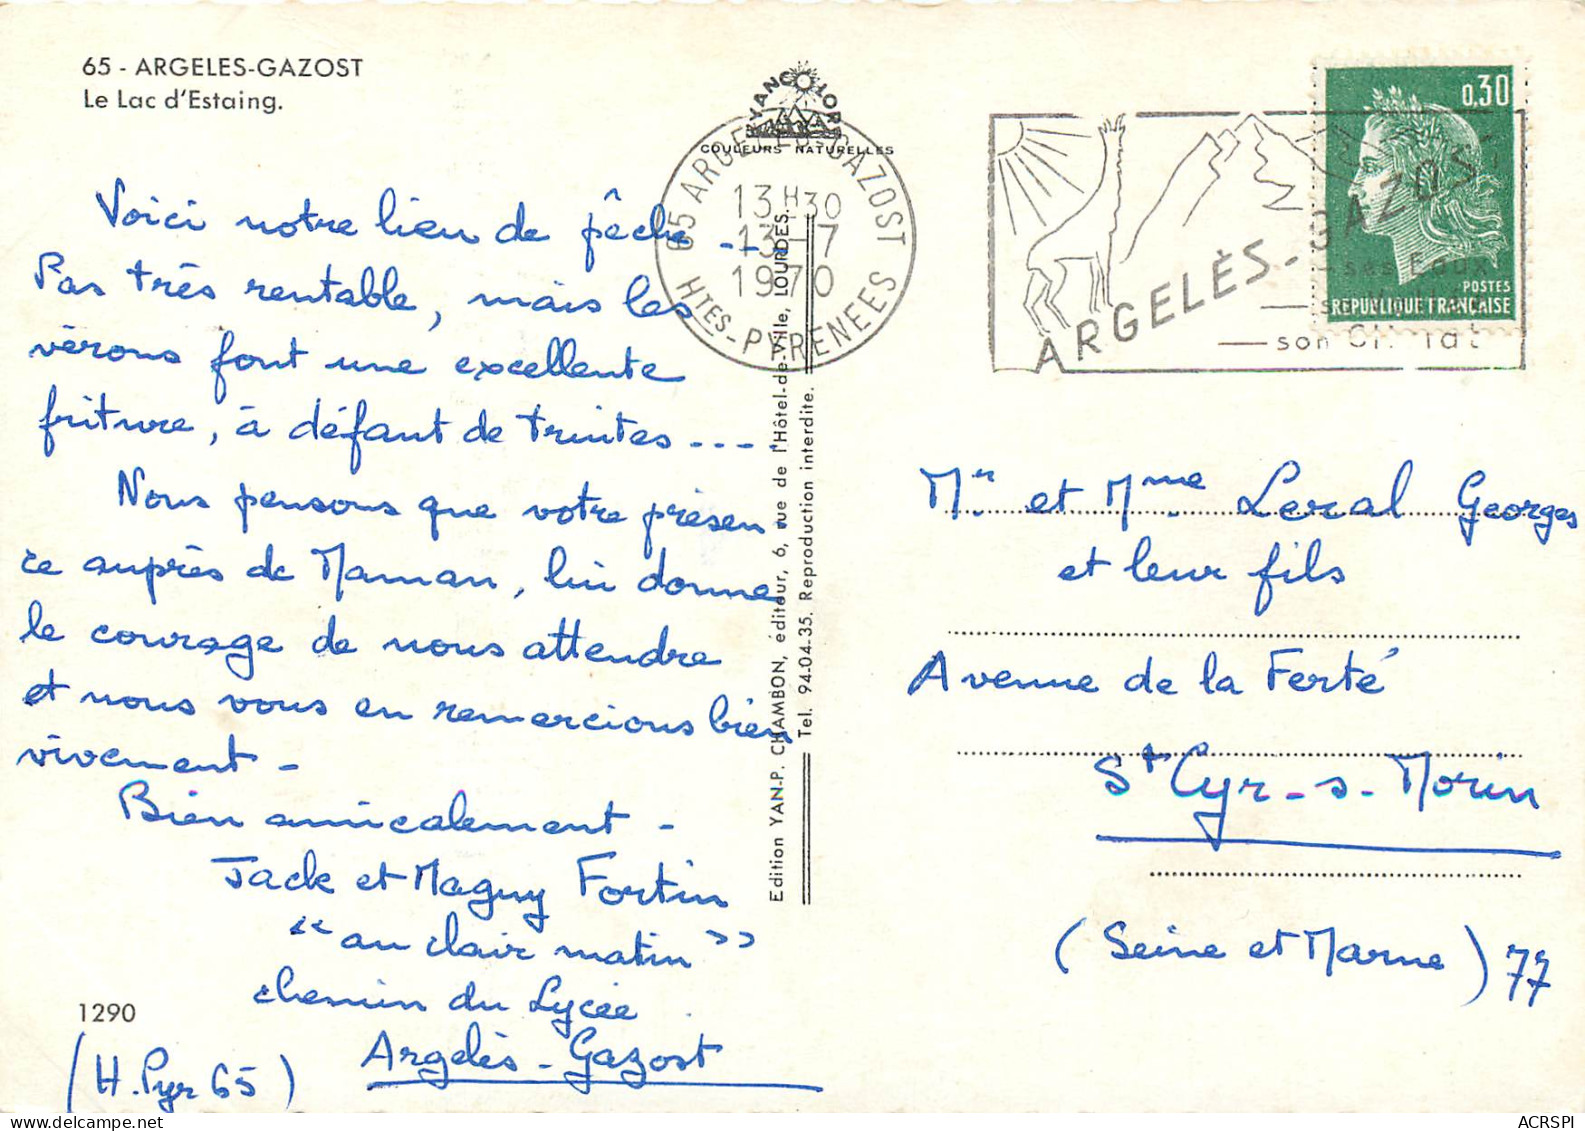 65 - ARGELES-GAZOST
Le Lac d'Estaing.
YANCOLOR
COULEURS NATURELLES
65 ARGELES-GAZOST
13H30
13-7
1970
HTES-PYRENEES
ARGELÈS-GAZOST
ses Eaux
son Climat
0,30
POSTES
REPUBLIQUE FRANÇAISE
Voici notre lieu de pêche ---
Pas très rentable, mais les
vérons font une excellente
friture, à défaut de truites ---
Nous pensons que votre présen
ce auprès de Maman, lui donne
le courage de nous attendre
et nous vous en remercions bien
vivement -
Bien amicalement -
Jack et Maguy Fortin
"au clair matin"
chemin du Lycée
Argelès-Gazost
(H. Pyr 65)
1290
Edition YAN-P. CHAMBON, éditeur, 6, rue de l'Hôtel-de-Ville, LOURDES.
Tel. 94-04-35. Reproduction interdite.
Mr et Mme Leral Georges
et leur fils
Avenue de la Ferté
St Cyr-s-Morin
(Seine et Marne) 77
ACRSPI